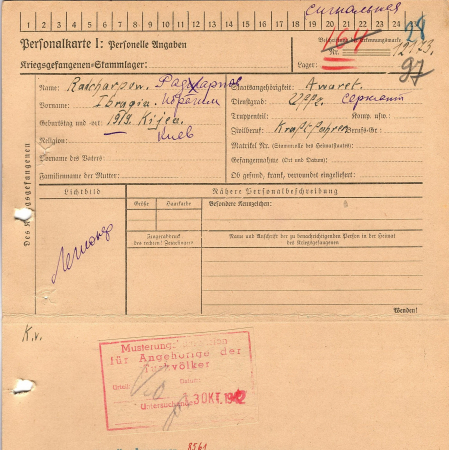 сигнальная
1 2 3 4 5 6 7 8 9 10 11 12 13 14 15 16 17 18 19 20 21 22 23 24
Personalkarte I: Personelle Angaben
Kriegsgefangenen-Stammlager:
Beschriftung der Erkennungsmarke
Nr. 12173
Lager: 97
Des Kriegsgefangenen
Name: Radcharpow.
Vorname: Ibragim. Ибрагим
Geburtstag und -ort: 1919. Kijew.
Киев
Religion:
Vorname des Vaters:
Familienname der Mutter:
Staatsangehörigkeit: Awaret.
Dienstgrad: сержант
Truppenteil: Komp. usw.
Zivilberuf: Kraftfahrer Berufs-Gr.:
Matrikel Nr. (Stammrolle des Heimatstaates):
Gefangennahme (Ort und Datum):
Ob gesund, krank, verwundet eingeliefert:
Lichtbild
Nähere Personalbeschreibung
Größe
Haarfarbe
Besondere Kennzeichen:
Fingerabdruck
des rechten! Zeigefingers
Name und Anschrift der zu benachrichtigenden Person in der Heimat
des Kriegsgefangenen
Легионер
Wenden!
K.v.
Musterung
für Angehörige der
Turkvölker
Urteil:
Untersuchung
13. OKT. 1942
8561